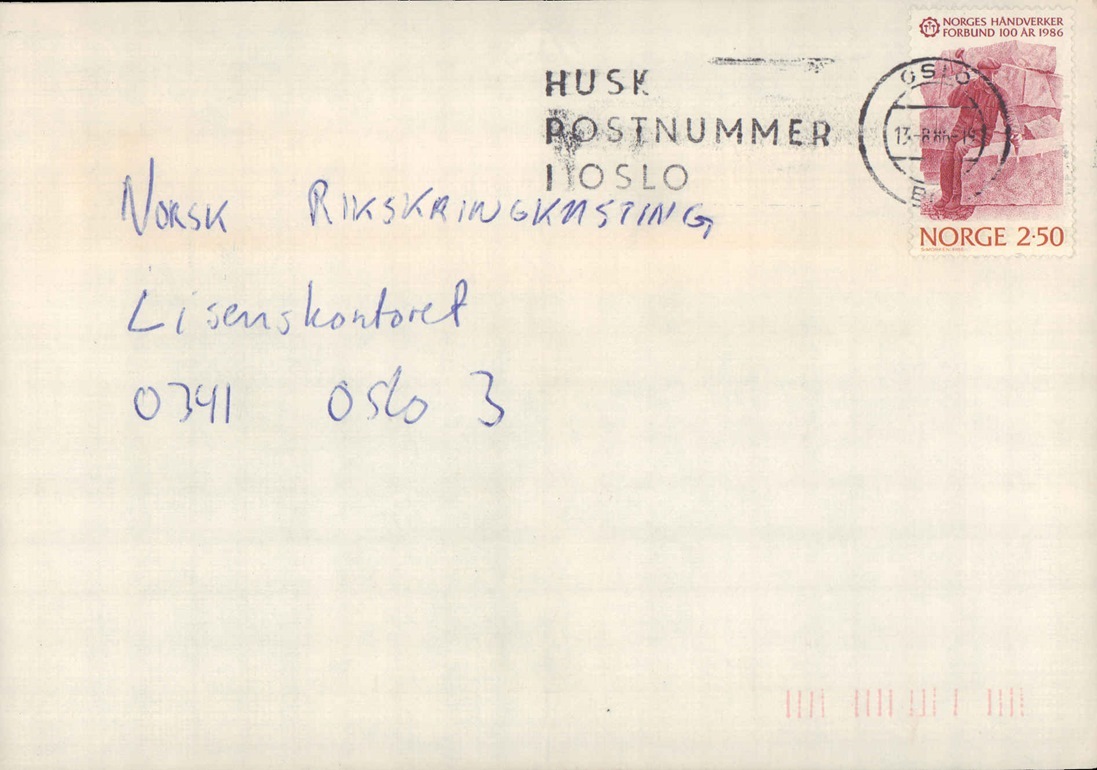 NORGES HÅNDVERKER
FORBUND 100 ÅR 1986
HUSK
POSTNUMMER
I OSLO
OSLO
13-8.86-19
NORGE 2·50
NORSK RIKSKRINGKASTING
Lisenskontoret
0341 Oslo 3